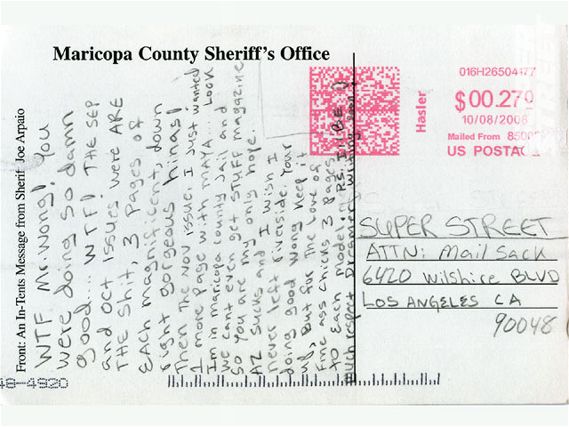 Maricopa County Sheriff's Office
Front: An In-Tents Message from Sheriff Joe Arpaio
WTF Mr. Wong! You
were doing so damn
good... WTF! THE SEP
and oct issues were ARE
THE Shit, 3 Pages of
EACH magnificent, down
right gorgeous hinas!
Then the nov issue. I Just wanted
1 more Page with MAYA. LOOK
Im in maricopa county Jail and
we cant even get STUFF magazine
So YOU are my only hope.
AZ SUCKS and I wish I
never left Riverside. Your
doing good Wong Keep it
up, But for the love of
fine ass chicks 3 Pages
to Each model! P.S. I'll BE
much respect Dreamer
016H26504177
Hasler
$00.270
10/08/2008
Mailed From
US POSTAG
SUPER STREET
ATTN: Mail Sack
6420 Wilshire BLVD
LOS ANGELES CA
90048